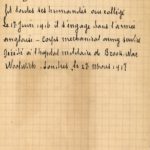 fit toutes ses humanités au collège
le 18 juin 1916 il s'engage dans l'armée
anglaise - Corps mechanical army service
décédé à l'hopital militaire de Brook War
Woolwich - Londres le 28 Mars 1917